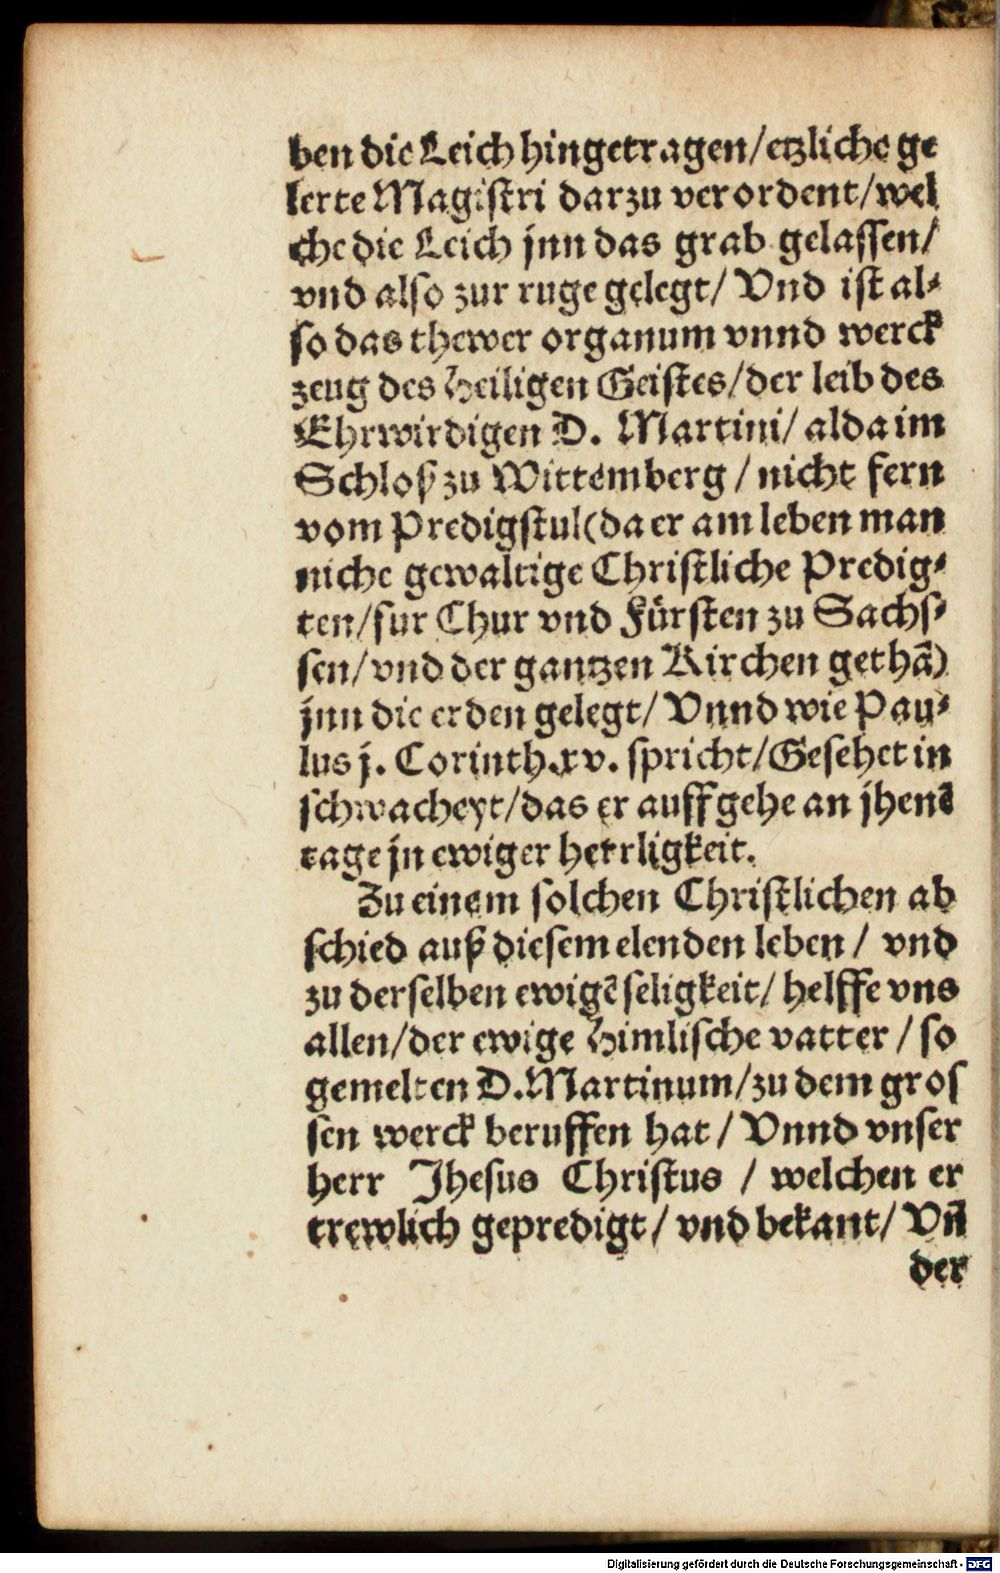 ben die Leich hingetragen/etzliche ge
lerte Magistri darzu verordent/wel
che die Leich jnn das grab gelassen/
vnd also zur ruge gelegt/ Vnd ist al⸗
so das thewer organum vnnd werck
zeug des Heiligen Geistes/der leib des
Ehrwirdigen D. Martini/ alda im
Schloß zu Wittemberg / nicht fern
vom Predigstul(da er am leben man
niche gewaltige Christliche Predig⸗
ten/fur Chur vnd Fürsten zu Sachs⸗
sen/vnd der gantzen Kirchen gethã)
jnn die erden gelegt/ Vnnd wie Pau⸗
lus j. Corinth.xv. spricht/Gesehet in
schwacheyt/das er auffgehe an jhenẽ
tage jn ewiger herrligkeit.
Zu einem solchen Christlichen ab
schied auß diesem elenden leben / vnd
zu derselben ewigẽ seligkeit/ helffe vns
allen/der ewige Himlische vatter / so
gemelten D.Martinum/zu dem gros
sen werck beruffen hat / Vnnd vnser
herr Jhesus Christus / welchen er
trewlich gepredigt/ vnd bekant/ Vñ
der
Digitalisierung gefördert durch die Deutsche Forschungsgemeinschaft - DFG